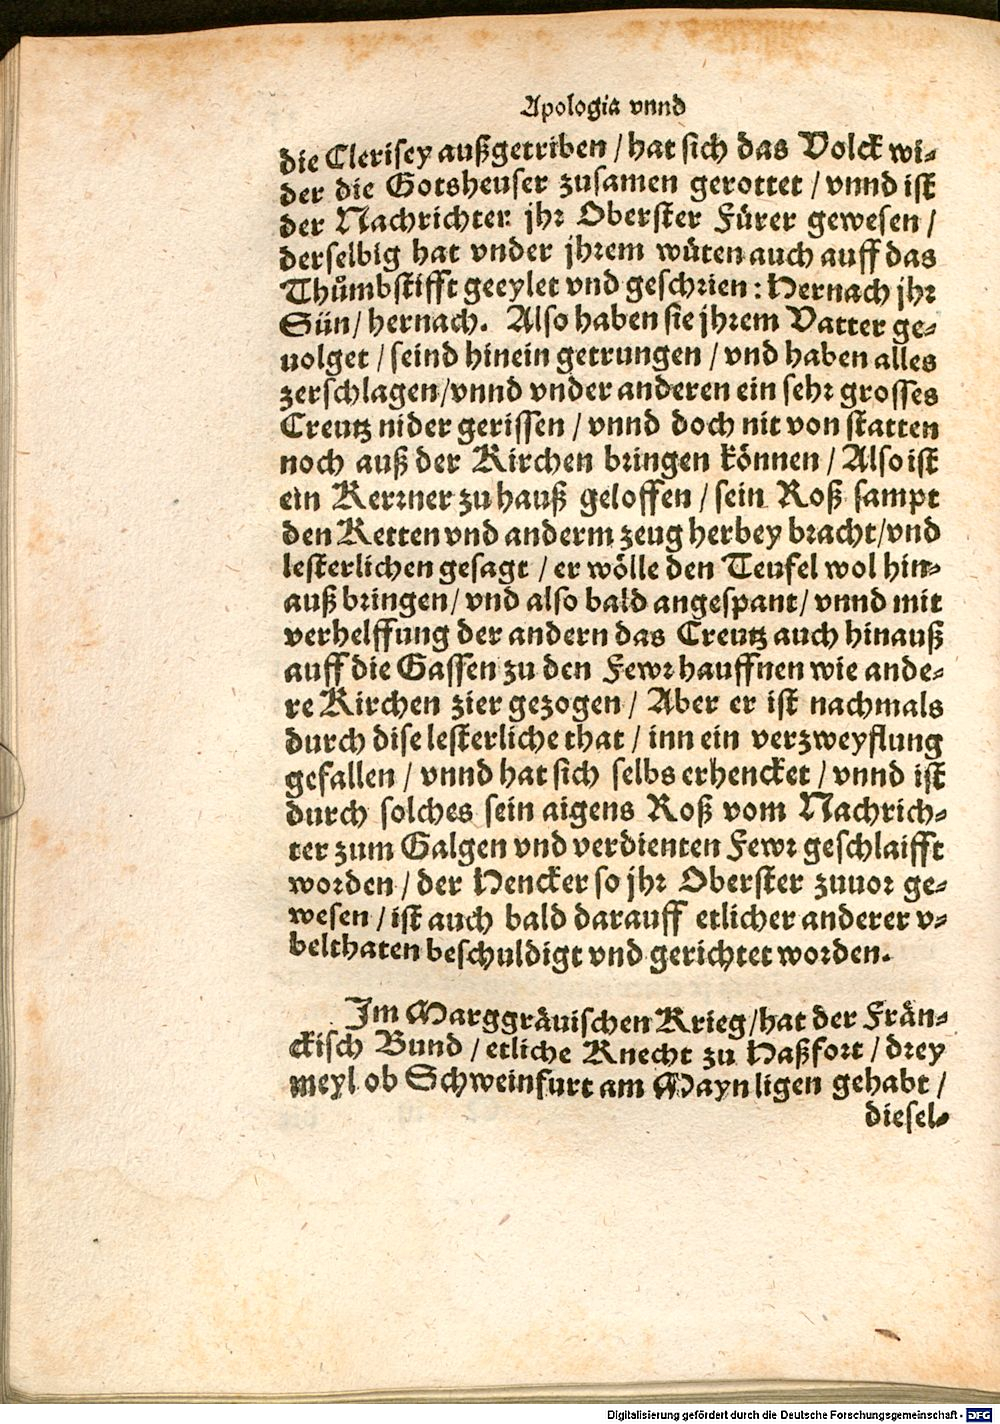 Apologia vnnd
die Clerisey außgetriben / hat sich das Volck wi-
der die Gotsheuser zusamen gerottet / vnnd ist
der Nachrichter jhr Oberster Fürer gewesen /
derselbig hat vnder jhrem wüten auch auff das
Thůmbstifft geeylet vnd geschrien : Hernach jhr
Sün / hernach. Also haben sie jhrem Vatter ge-
uolget / seind hinein getrungen / vnd haben alles
zerschlagen / vnnd vnder anderen ein sehr grosses
Creutz nider gerissen / vnnd doch nit von statten
noch auß der Kirchen bringen können / Also ist
ein Kerrner zu hauß geloffen / sein Roß sampt
den Ketten vnd anderm zeug herbey bracht / vnd
lesterlichen gesagt / er wölle den Teufel wol hin-
auß bringen / vnd also bald angespant / vnnd mit
verhelffung der andern das Creutz auch hinauß
auff die Gassen zu den Fewrhauffnen wie ande-
re Kirchen zier gezogen / Aber er ist nachmals
durch dise lesterliche that / inn ein verzweyflung
gefallen / vnnd hat sich selbs erhencket / vnnd ist
durch solches sein aigens Roß vom Nachrich-
ter zum Galgen vnd verdienten Fewr geschlaifft
worden / der Hencker so jhr Oberster zuuor ge-
wesen / ist auch bald darauff etlicher anderer v-
belthaten beschuldigt vnd gerichtet worden.
Im Marggräuischen Krieg / hat der Frän-
ckisch Bund / etliche Knecht zu Haßfort / drey
meyl ob Schweinfurt am Mayn ligen gehabt /
diesel-
Digitalisierung gefördert durch die Deutsche Forschungsgemeinschaft - DFG